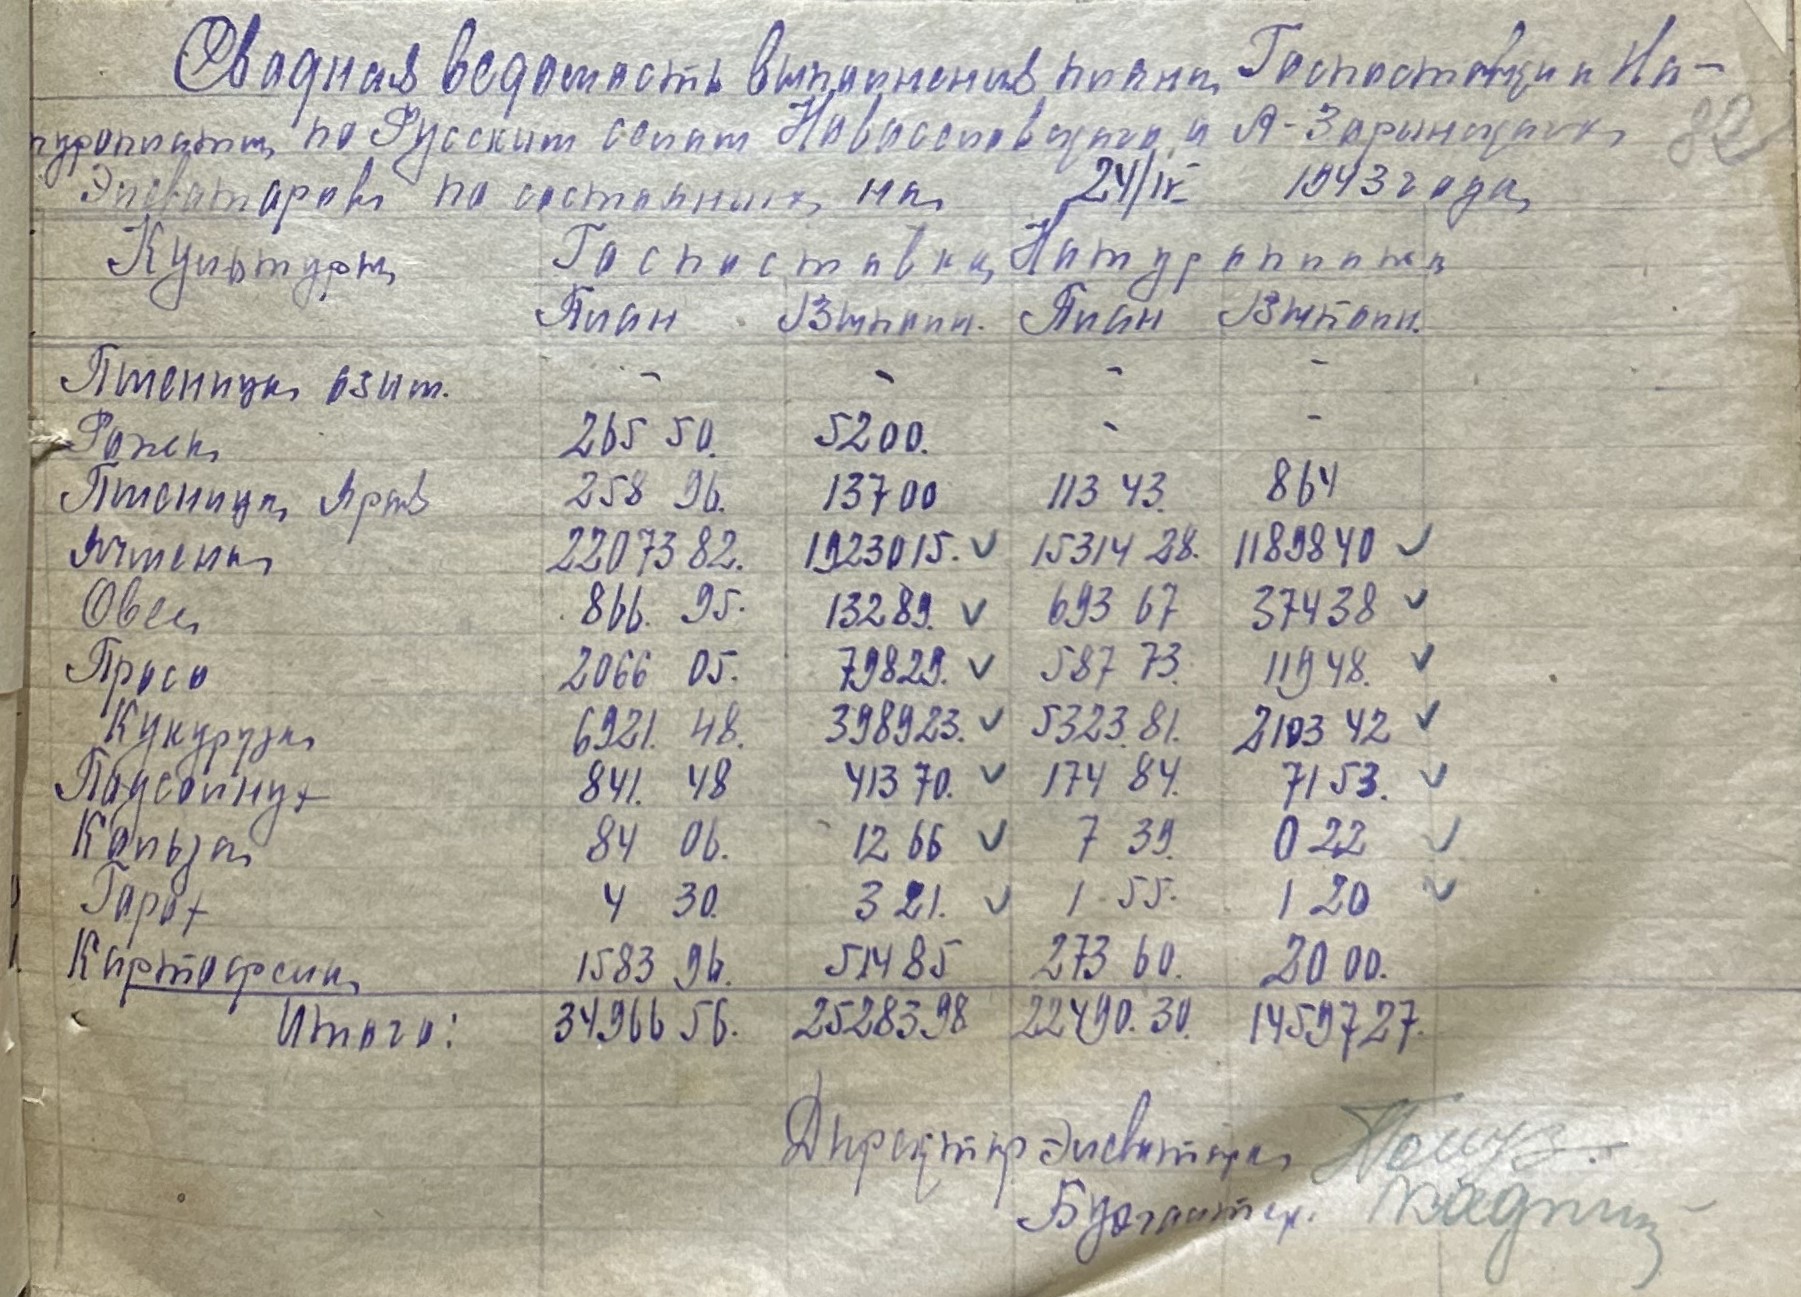 Сводная ведомость выполнения плана Госпоставки и На-
туроплаты по Русским селам Новоселовского и А-Заринского 82
Элеваторов по состоянию на 24/IX 1943 года
Культуры Госпоставка Натуроплата
План Выполн. План Выполн.
Пшеница озим. - - - -
Рожь 265 50. 5200. - -
Пшеница Яров 258 96. 13700 113 43. 864
Ячмень 22073 82. 1923015. ✓ 15314 28. 1189840 ✓
Овес 866. 95. 13289. ✓ 693 67 37438 ✓
Просо 2066 05. 79829. ✓ 587 73. 11948. ✓
Кукуруза 6921. 48. 398923. ✓ 5323.81. 2103 42 ✓
Подсолнух 841. 48 41370. ✓ 174 84. 7153. ✓
Кользa 84 06. 1266 ✓ 7 39. 0 22 ✓
Горох 4 30. 321. ✓ 1 55. 1 20 ✓
Картофель 1583 96. 51485 273 60. 2000.
Итого: 34966 56. 2528398 22490.30. 1459727.
Директор Элеватора
Бухгалтер.